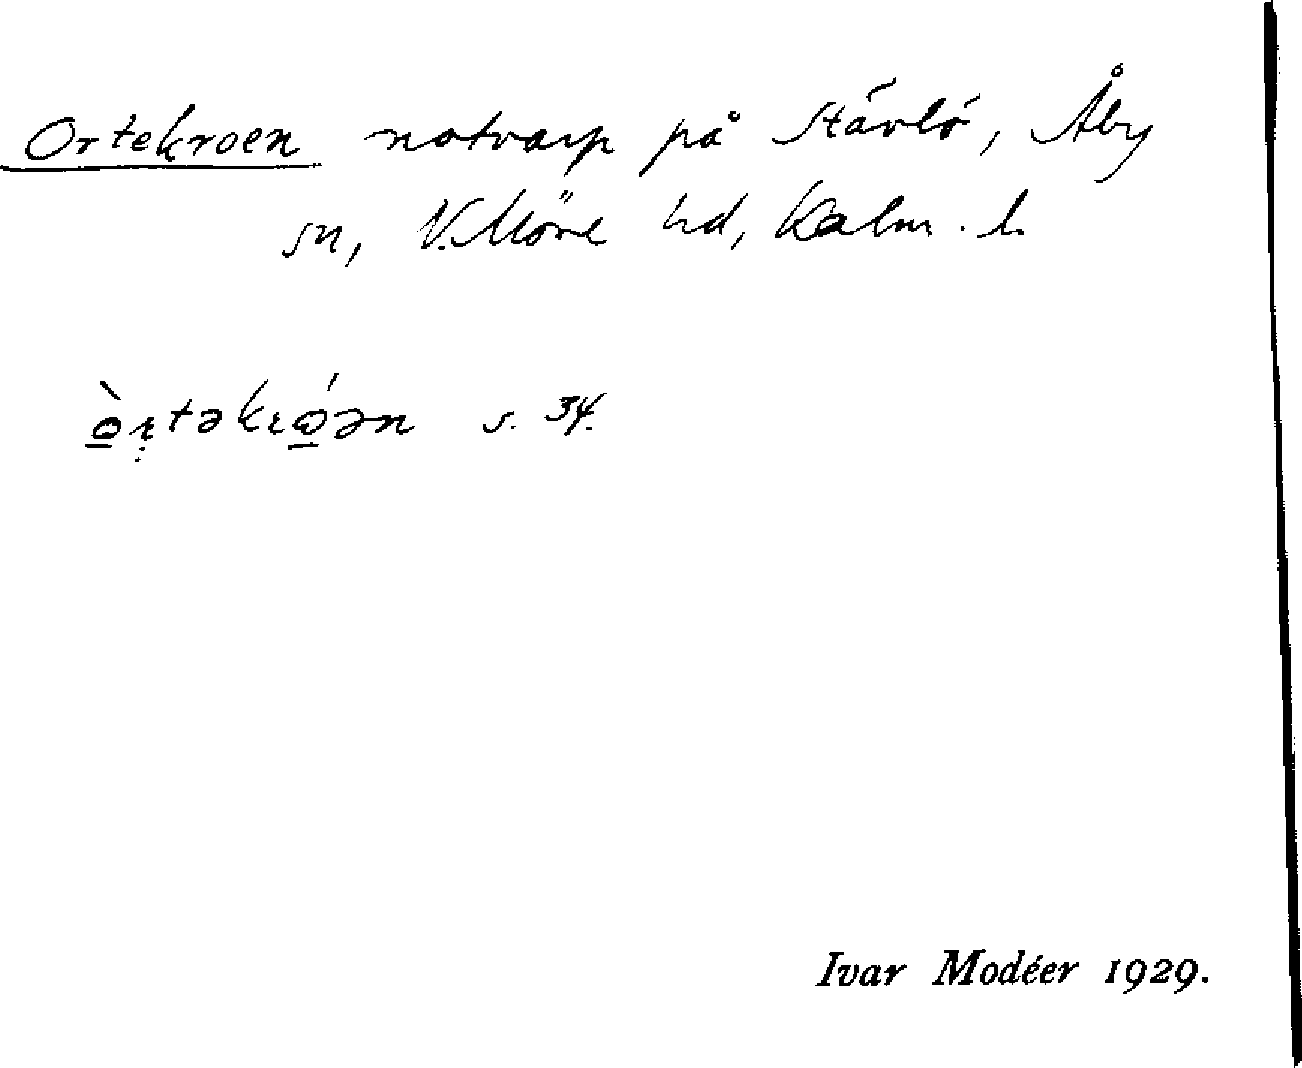 Ortekroen notvarp på Stävlö, Åby
sn, N. Möre hd, Kalm. l.
s. 34.
Ivar Modéer 1929.